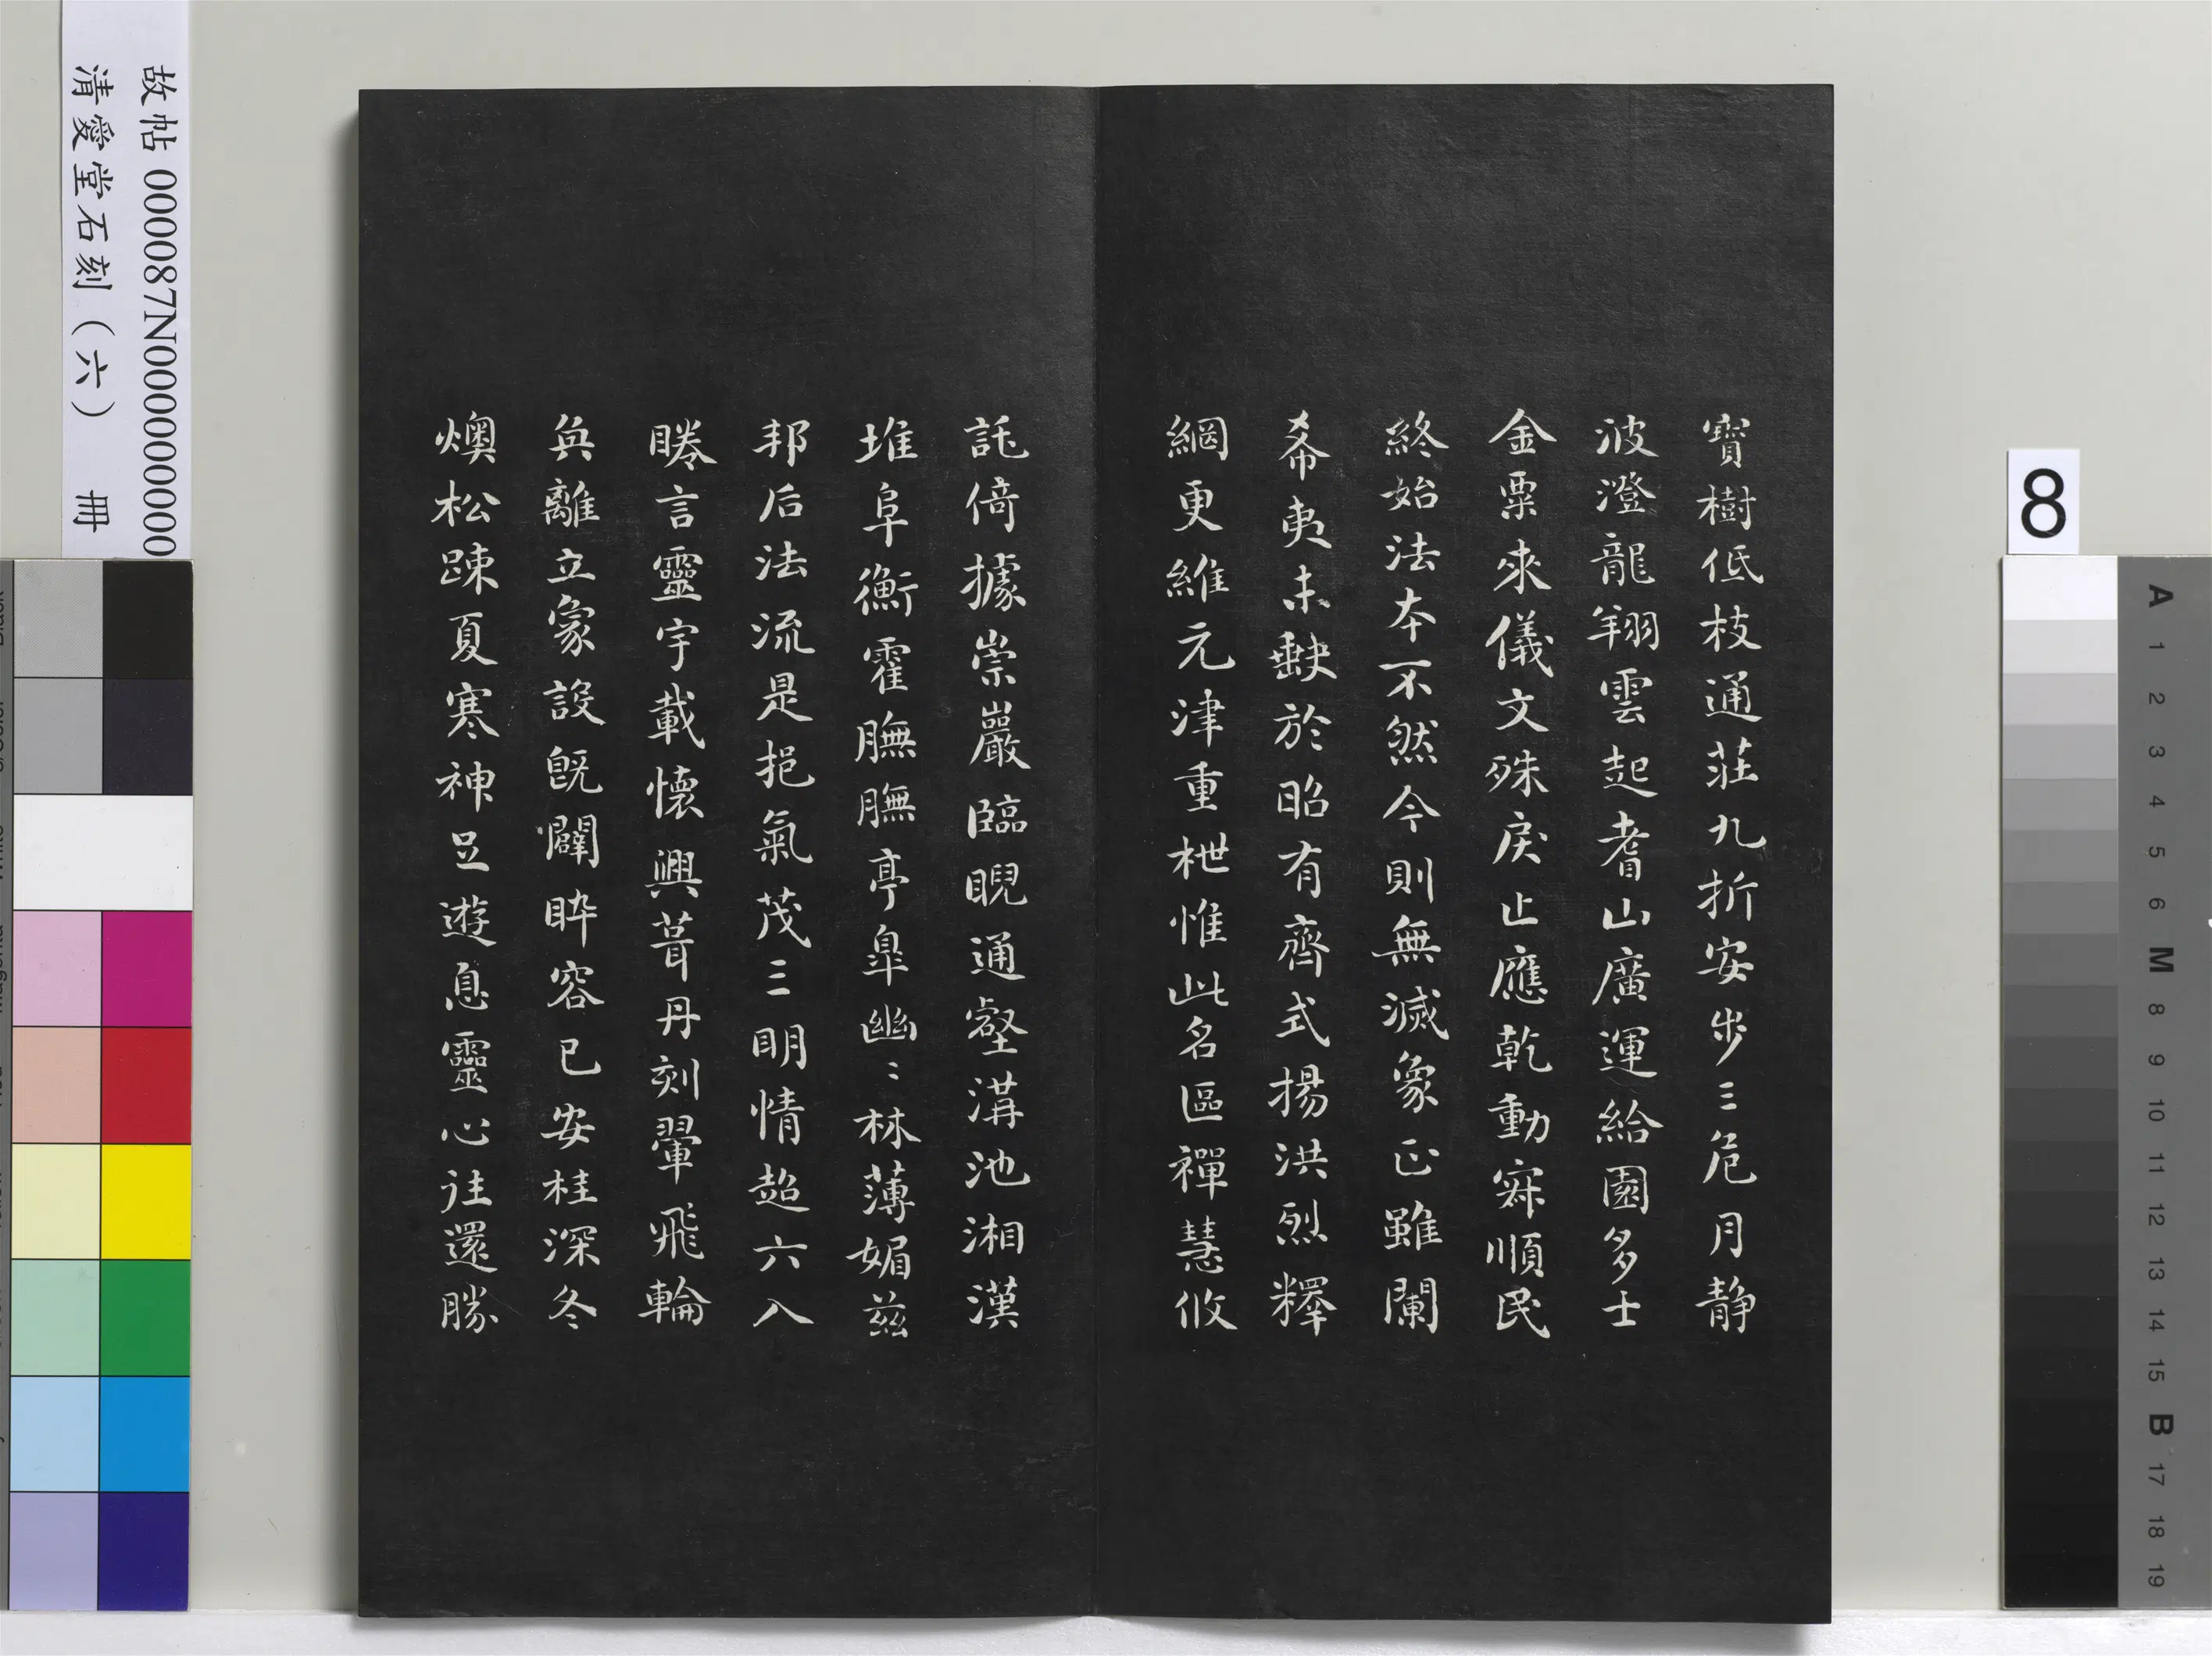 寶樹低枝通莊九折安步三危月静
波澄龍翔雲起耆山廣運給園多士
金粟來儀文殊戾止應乾動寂順民
終始法本不然今則無滅象正雖闌
希夷未缺於昭有齊式揚洪烈釋
網更維元津重枻惟此名區禪慧攸
託倚據崇巖臨睨通壑溝池湘漢
堆阜衡霍膴膴亭皐幽〻林薄媚茲
邦后法流是挹氣茂三明情超六入
睠言靈宇載懷興葺丹刻翬飛輪
奐離立象設旣闢睟容已安桂深冬
燠松踈夏寒神足遊息靈心往還勝
故帖 000087N000000000
清愛堂石刻（六） 冊
8
A
1
2
3
4
5
6
M
8
9
10
11
12
13
14
15
B
17
18
19